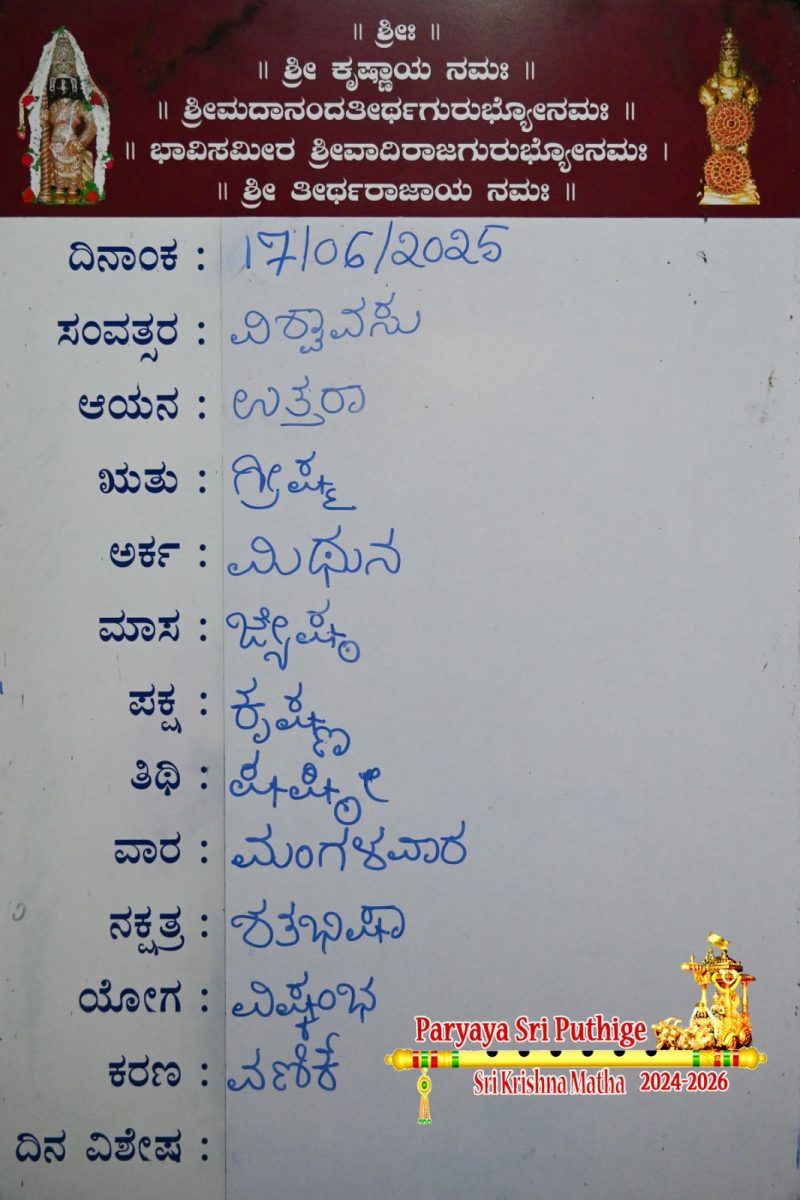 ॥ ಶ್ರೀಃ ॥
॥ ಶ್ರೀ ಕೃಷ್ಣಾಯ ನಮಃ ॥
॥ ಶ್ರೀಮದಾನಂದತೀರ್ಥಗುರುಭ್ಯೋನಮಃ ॥
॥ ಭಾವಿಸಮೀರ ಶ್ರೀವಾದಿರಾಜಗುರುಭ್ಯೋನಮಃ ।
॥ ಶ್ರೀ ತೀರ್ಥರಾಜಾಯ ನಮಃ ॥
ದಿನಾಂಕ : 17/06/2025
ಸಂವತ್ಸರ : ವಿಶ್ವಾವಸು
ಆಯನ : ಉತ್ತರಾ
ಋತು : ಗ್ರೀಷ್ಮ
ಅರ್ಕ : ಮಿಥುನ
ಮಾಸ : ಜ್ಯೇಷ್ಠ
ಪಕ್ಷ : ಕೃಷ್ಣ
ತಿಥಿ : ಷಷ್ಠೀ
ವಾರ : ಮಂಗಳವಾರ
ನಕ್ಷತ್ರ : ಶತಭಿಷಾ
ಯೋಗ : ವಿಷ್ಕಂಭ
ಕರಣ : ವಣಿಕೆ
ದಿನ ವಿಶೇಷ :
Paryaya Sri Puthige
Sri Krishna Matha 2024-2026